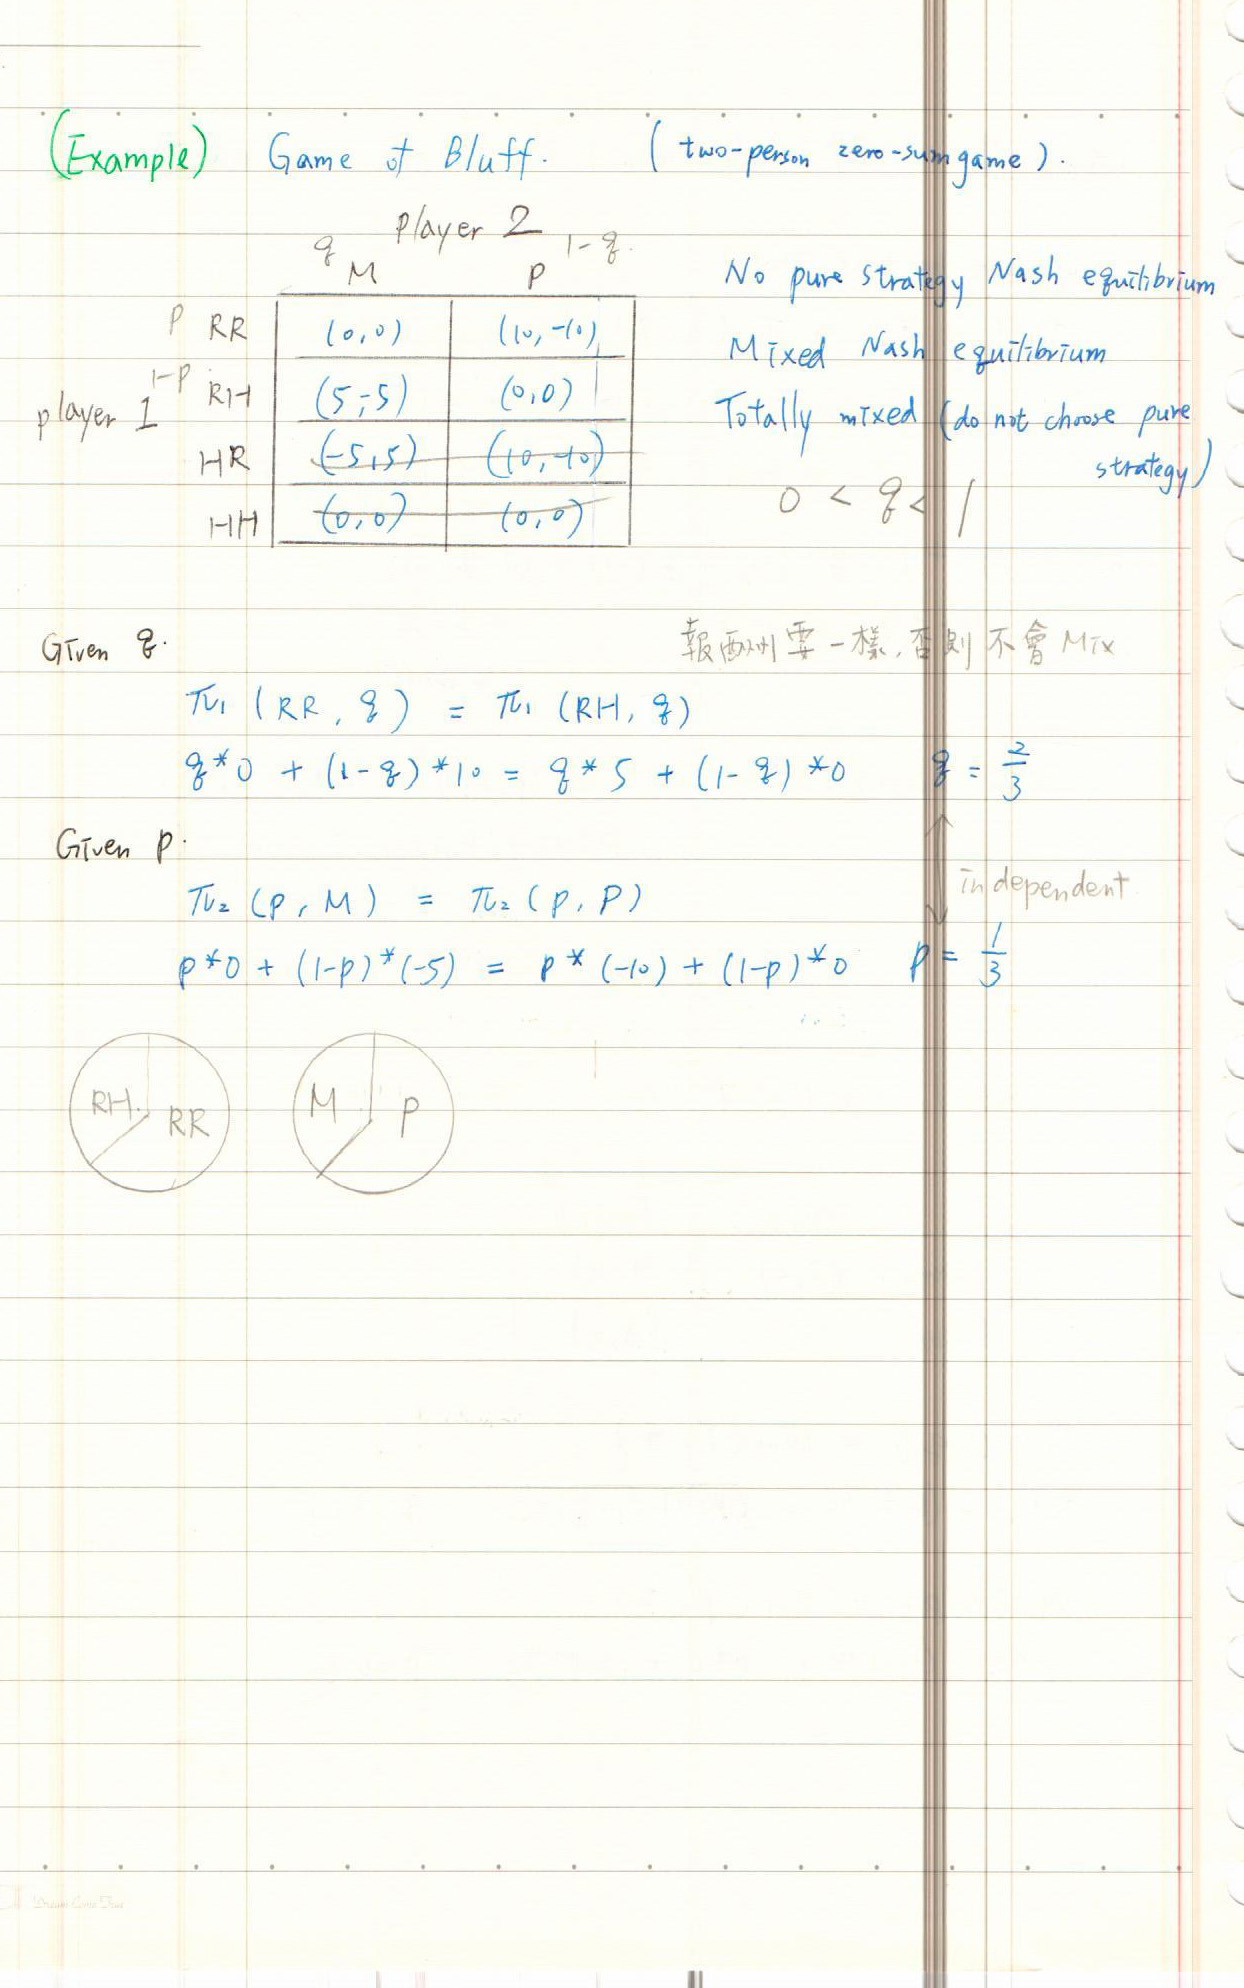 (Example) Game of Bluff. (two-person zero-sum game).
player 2
q 1-q.
M P
p RR (0,0) (10,-10)
1-p RH (5,-5) (0,0)
player 1
HR (-5,5) (10,-10)
HH (0,0) (0,0)
No pure strategy Nash equilibrium
Mixed Nash equilibrium
Totally mixed (do not choose pure
strategy)
0 < q < 1
Given q.
報酬要一樣,否則不會Mix
π₁ (RR, q) = π₁ (RH, q)
q*0 + (1-q)*10 = q*5 + (1-q)*0 q = 2/3
Given p.
π₂ (p, M) = π₂ (p, P)
independent
p*0 + (1-p)*(-5) = p*(-10) + (1-p)*0 p = 1/3
RH RR
M P